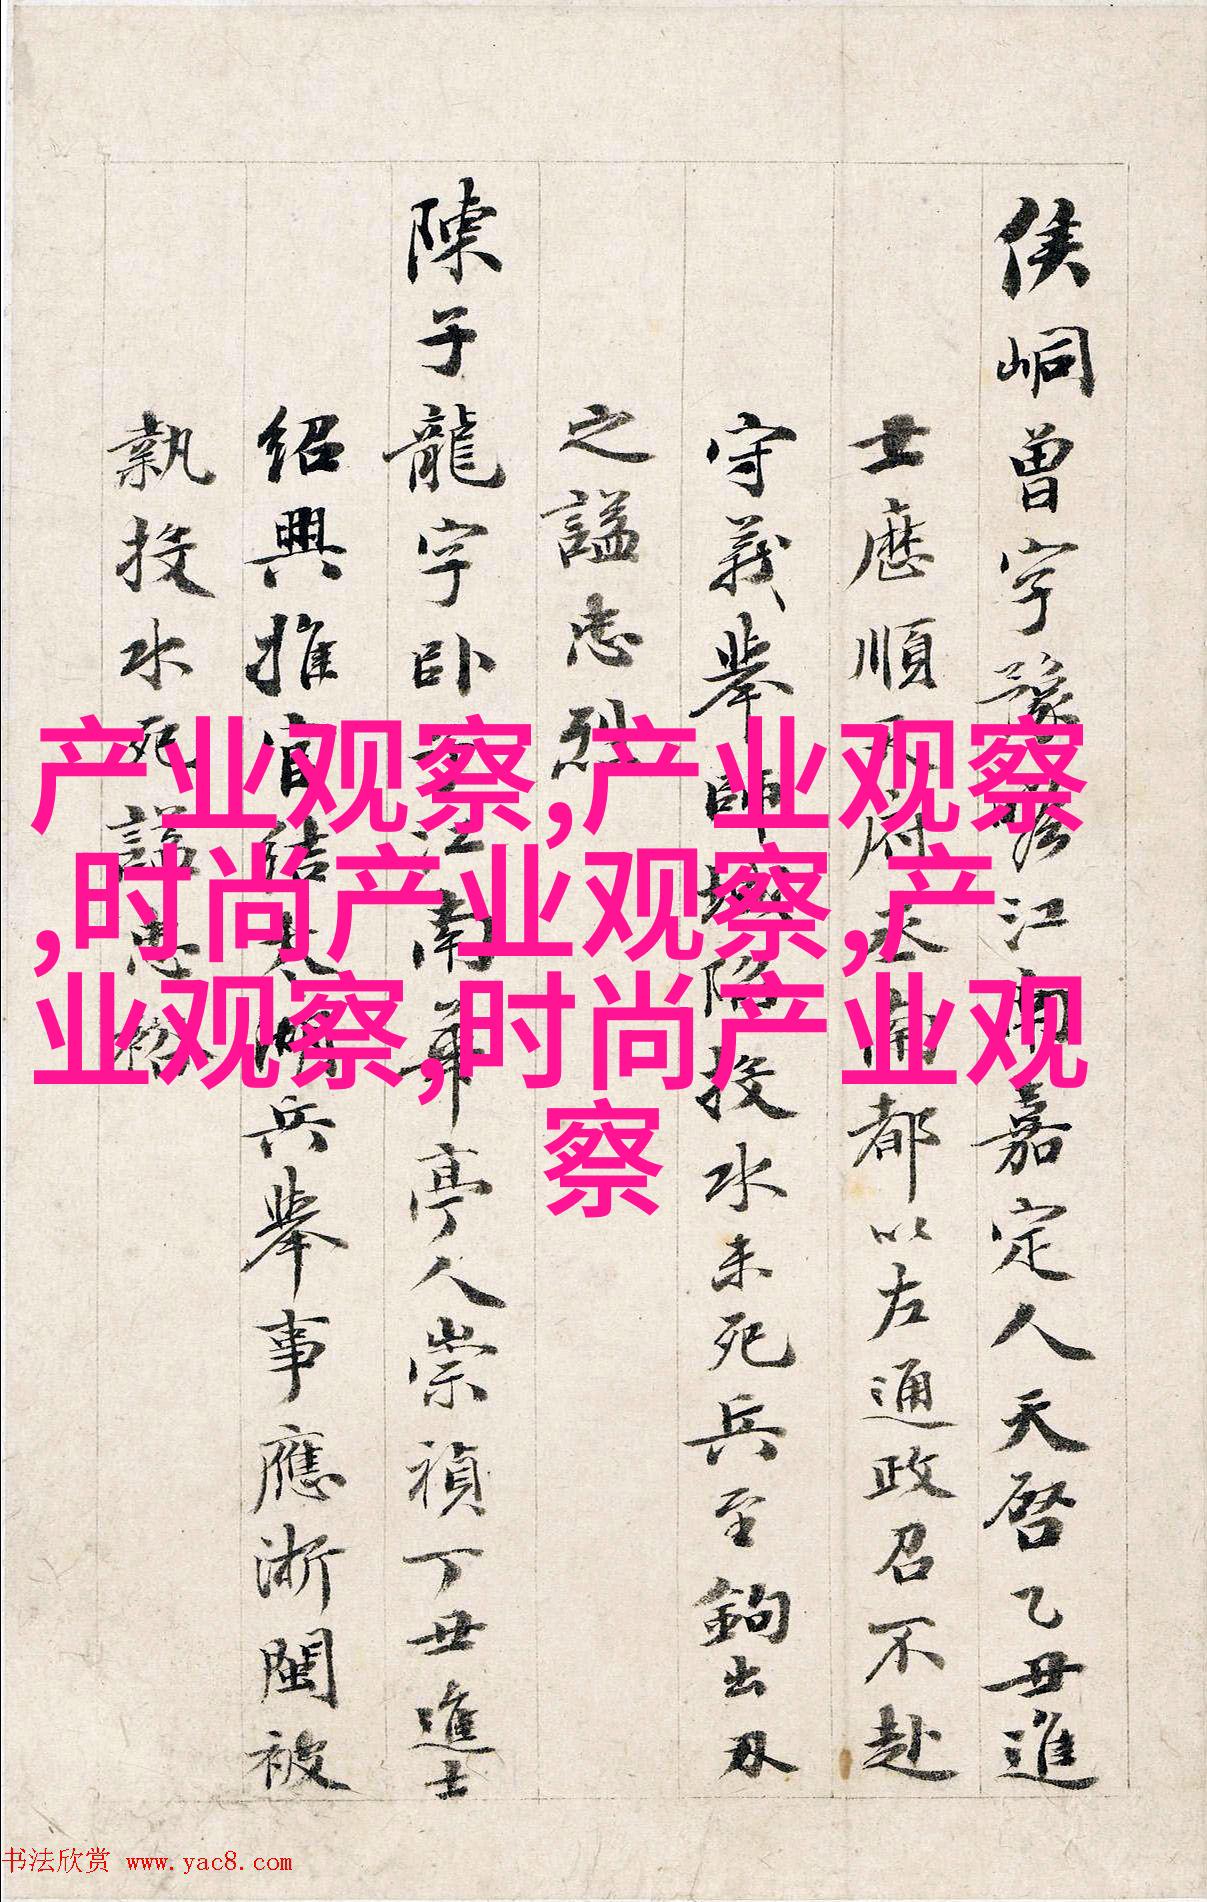 侯峒曾字豫瞻江南嘉定人天啓乙丑進
士歷順天府丞南都以左通政召不赴
守義舉師城陷投水未死兵至鉤出刃
之謚忠烈
陳子龍字卧子江南華亭人崇禎丁丑進士
紹興推官結太湖兵舉事應浙閩被
執投水死謚忠裕
产业观察,产业观察
,时尚产业观察,产
业观察,时尚产业观
察
书法欣赏 www.yac8.com